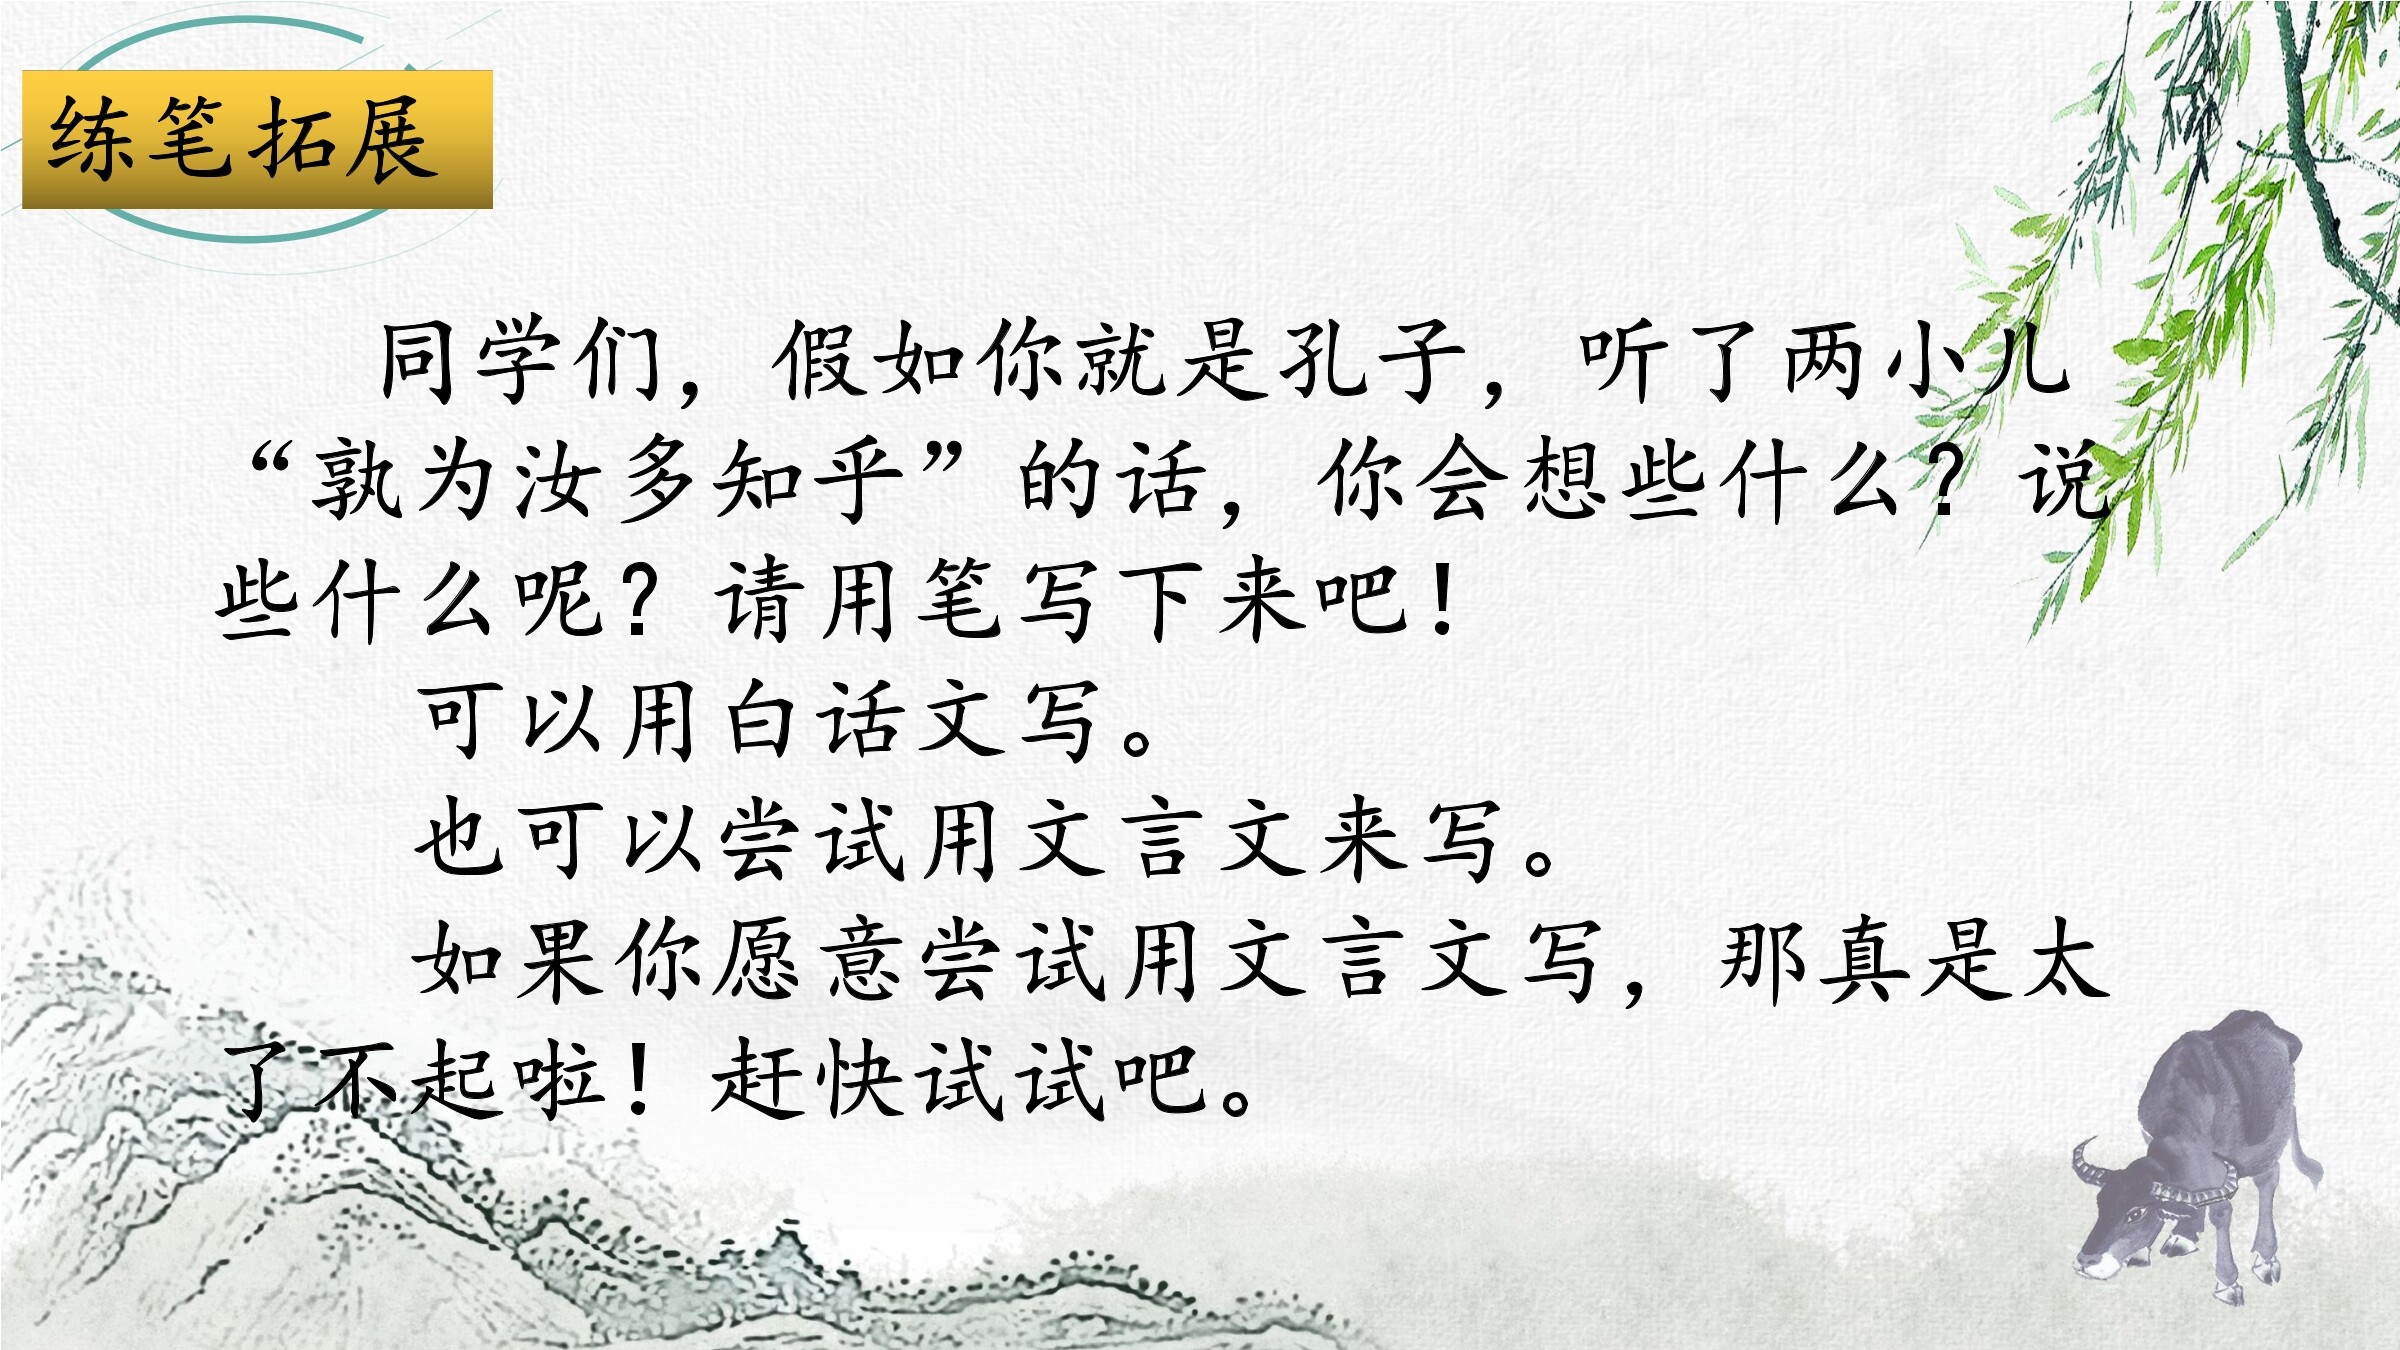 练笔拓展
同学们，假如你就是孔子，听了两小儿
“孰为汝多知乎”的话，你会想些什么？说
些什么呢？请用笔写下来吧！
可以用白话文写。
也可以尝试用文言文来写。
如果你愿意尝试用文言文写，那真是太
了不起啦！赶快试试吧。